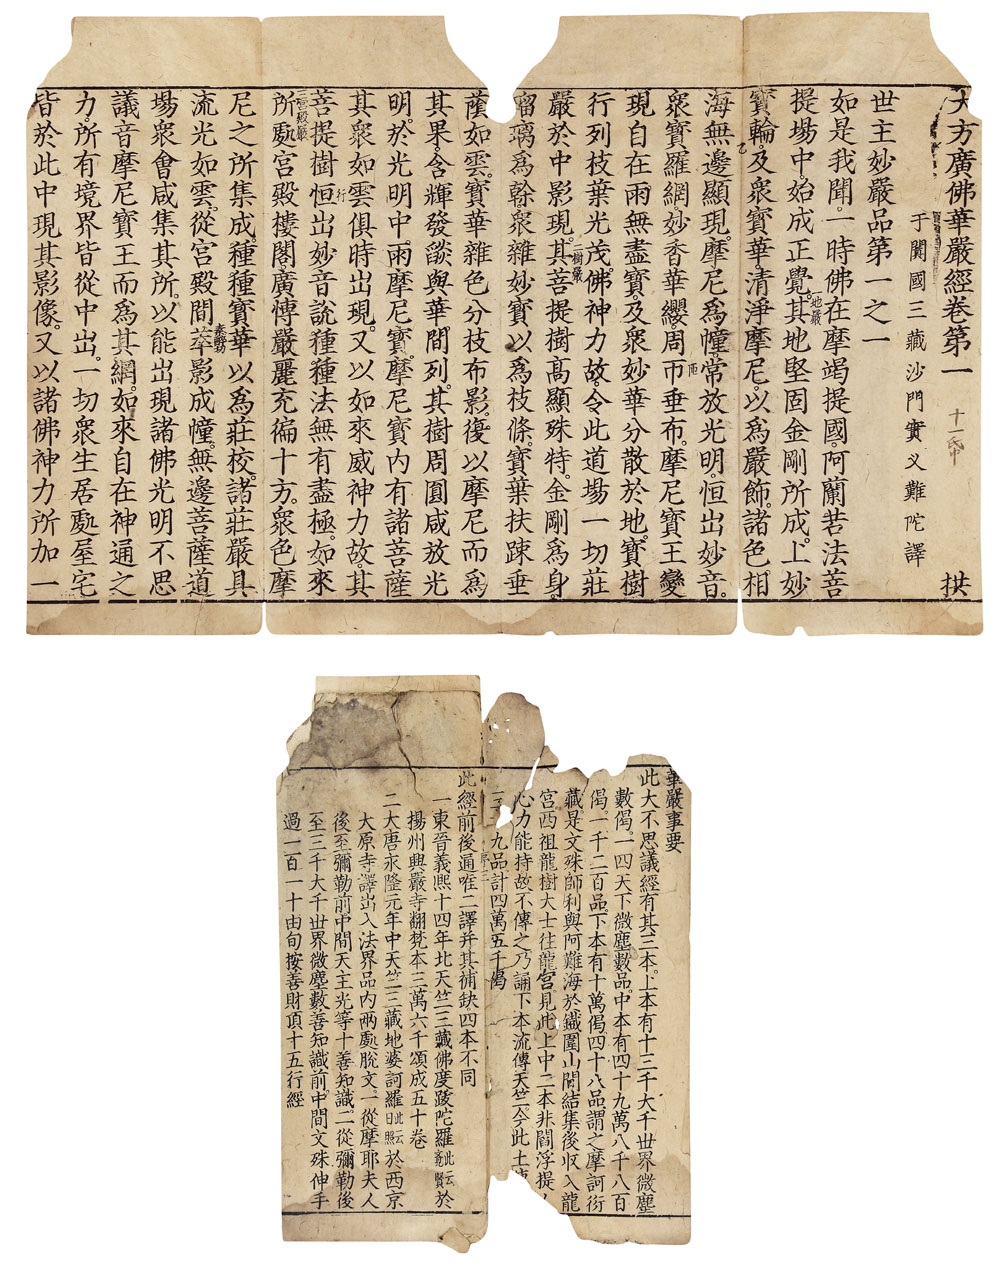 大方廣佛華嚴經卷第一 十一 拱
于闐國三藏沙門實叉難陀譯
世主妙嚴品第一之一
如是我聞一時佛在摩竭提國阿蘭若法菩
提場中始成正覺其地堅固金剛所成上妙
地嚴
寶輪及衆寶華清淨摩尼以爲嚴飾諸色相
海無邊顯現摩尼爲幢常放光明恒出妙音
衆寶羅網妙香華纓周帀垂布摩尼寶王變
現自在雨無盡寶及衆妙華分散於地寶樹
行列枝葉光茂佛神力故令此道場一切莊
嚴於中影現其菩提樹高顯殊特金剛爲身
二樹嚴
瑠璃爲幹衆雜妙寶以爲枝條寶葉扶踈垂
蔭如雲寶華雜色分枝布影復以摩尼而爲
其果含輝發燄與華間列其樹周圓咸放光
明於光明中雨摩尼寶摩尼寶內有諸菩薩
其衆如雲俱時出現又以如來威神力故其
菩提樹恒出妙音說種種法無有盡極如來
行
三宮殿嚴
所處宮殿樓閣廣愽嚴麗充徧十方衆色摩
尼之所集成種種寶華以爲莊校諸莊嚴具
流光如雲從宮殿間萃影成幢無邊菩薩道
場衆會咸集其所以能出現諸佛光明不思
議音摩尼寶王而爲其網如來自在神通之
力所有境界皆從中出一切衆生居處屋宅
皆於此中現其影像又以諸佛神力所加一
華嚴事要
此大不思議經有其三本上本有十三千大千世界微塵
數偈一四天下微塵數品中本有四十九萬八千八百
偈一千二百品下本有十萬偈四十八品謂之摩訶衍
藏是文殊師利與阿難海於鐵圍山間結集後収入龍
宮西祖龍樹大士往龍宮見此上中二本非閻浮提人
心力能持故不傳之乃誦下本流傳天竺今此土
九品計四萬五千偈
此經前後通唯二譯并其補缺四本不同
一東晉義熙十四年北天竺三藏佛度跋陀羅此云覺賢於
揚州興嚴寺翻梵本三萬六千頌成五十卷
二大唐永隆元年中天竺三藏地婆訶羅此云日照於西京
大原寺譯出入法界品內兩處脫文一從摩耶夫人
後至彌勒前中間天主光等十善知識二從彌勒後
至三千大千世界微塵數善知識前中間文殊伸手
過一百一十由旬按善財頂十五行經